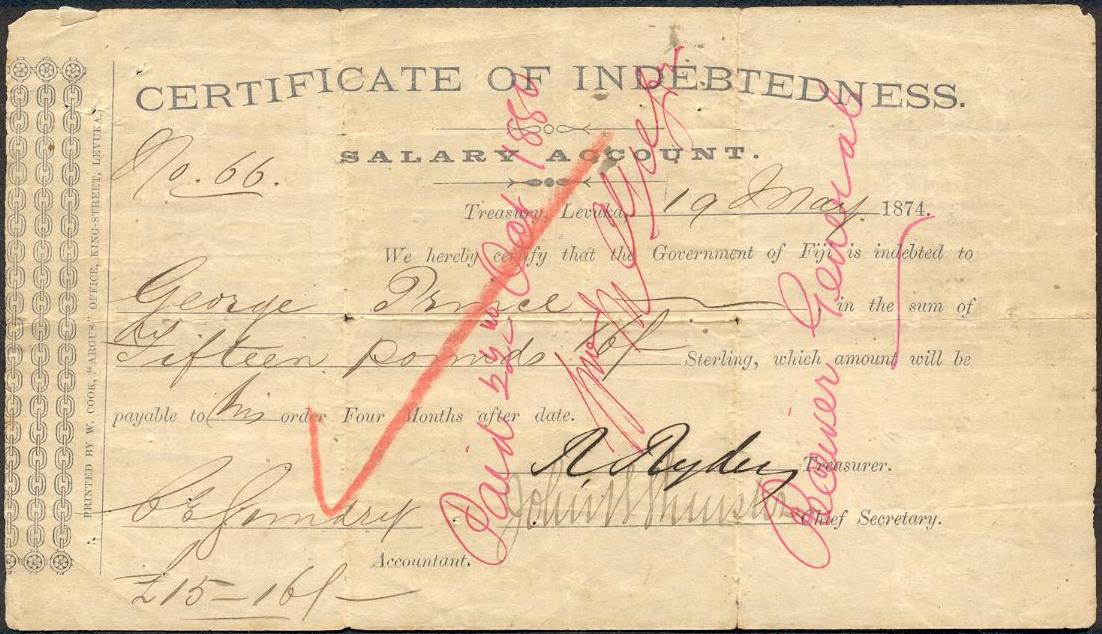 CERTIFICATE OF INDEBTEDNESS.
SALARY ACCOUNT.
No. 66.
Treasury, Levuka, 19 May 1874.
We hereby certify that the Government of Fiji is indebted to
George Prince in the sum of
Fifteen pounds 16/- Sterling, which amount will be
payable to his order Four Months after date.
R. Ryder Treasurer.
Chief Secretary.
Accountant.
£15-16/-
PRINTED BY W. COOK, "ARGUS" OFFICE, KING-STREET, LEVUKA.
Paid Oct 1880
General